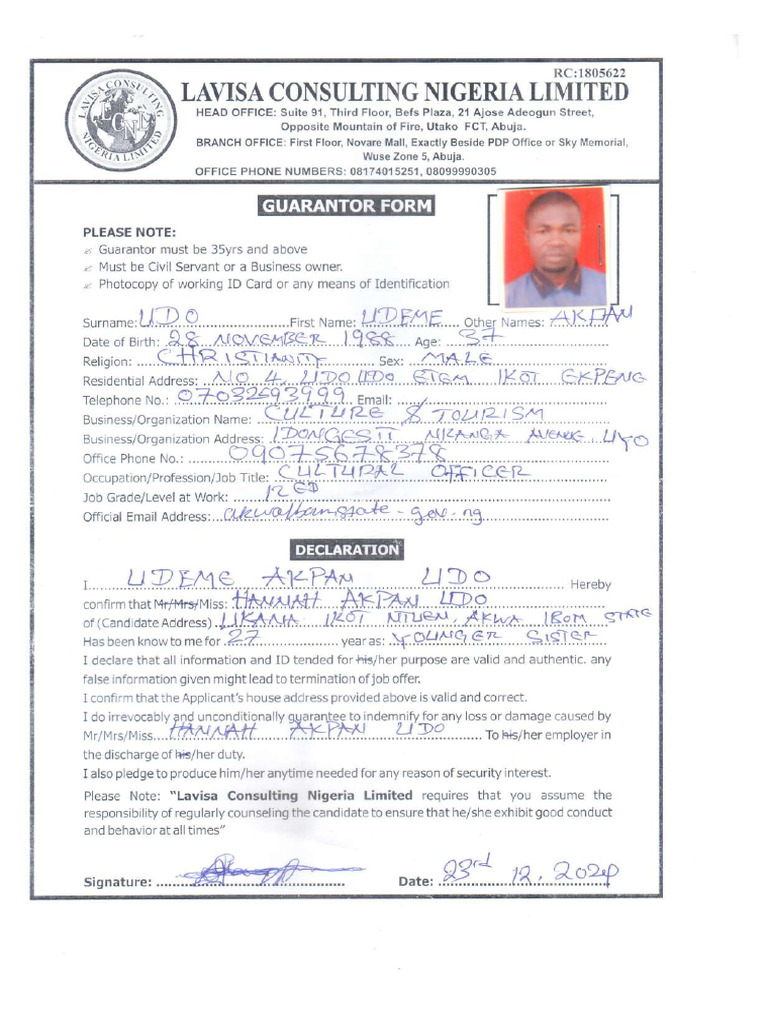 RC:1805622
LAVISA CONSULTING NIGERIA LIMITED
LAVISA CONSULTING
LCNL
NIGERIA LIMITED
HEAD OFFICE: Suite 91, Third Floor, Befs Plaza, 21 Ajose Adeogun Street,
Opposite Mountain of Fire, Utako FCT, Abuja.
BRANCH OFFICE: First Floor, Novare Mall, Exactly Beside PDP Office or Sky Memorial,
Wuse Zone 5, Abuja.
OFFICE PHONE NUMBERS: 08174015251, 08099990305
GUARANTOR FORM
PLEASE NOTE:
Guarantor must be 35yrs and above
Must be Civil Servant or a Business owner.
Photocopy of working ID Card or any means of Identification
Surname: UDO First Name: UDEME Other Names: AKPAN
Date of Birth: 28 NOVEMBER 1988 Age: 37
Religion: CHRISTIANITY Sex: MALE
Residential Address: NO 4 UDO UDO ETEM IKOT EKPENG
Telephone No.: 07032593999 Email:
Business/Organization Name: CULTURE & TOURISM
Business/Organization Address: IDONGESIT NKANGA AVENUE UYO
Office Phone No.: 09075678378
Occupation/Profession/Job Title: CULTURAL OFFICER
Job Grade/Level at Work:
Official Email Address: akwaibomstate-gov.ng
DECLARATION
I UDEME AKPAN UDO Hereby
confirm that Mr/Mrs/Miss: HANNAH AKPAN UDO
of (Candidate Address) UKANA IKOT NTUEN, AKWA IBOM STATE
Has been know to me for 27 year as: YOUNGER SISTER
I declare that all information and ID tended for his/her purpose are valid and authentic. any
false information given might lead to termination of job offer.
I confirm that the Applicant's house address provided above is valid and correct.
I do irrevocably and unconditionally guarantee to indemnify for any loss or damage caused by
Mr/Mrs/Miss HANNAH AKPAN UDO To his/her employer in
the discharge of his/her duty.
I also pledge to produce him/her anytime needed for any reason of security interest.
Please Note: "Lavisa Consulting Nigeria Limited requires that you assume the
responsibility of regularly counseling the candidate to ensure that he/she exhibit good conduct
and behavior at all times"
Signature: Date: 23rd 12. 2024